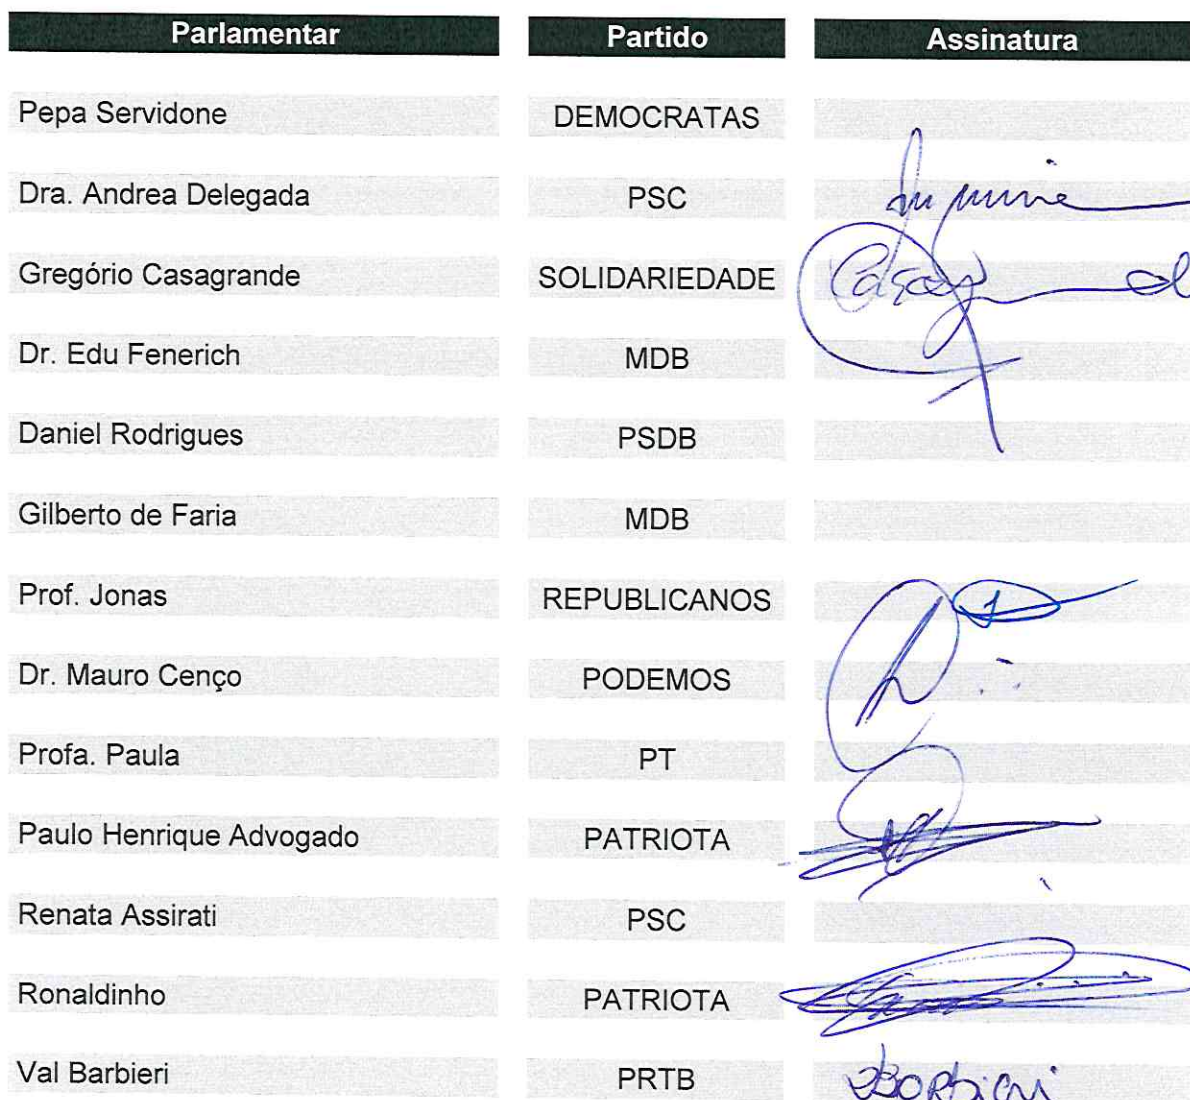 Parlamentar Partido Assinatura
Pepa Servidone DEMOCRATAS
Dra. Andrea Delegada PSC
Gregório Casagrande SOLIDARIEDADE
Dr. Edu Fenerich MDB
Daniel Rodrigues PSDB
Gilberto de Faria MDB
Prof. Jonas REPUBLICANOS
Dr. Mauro Cenço PODEMOS
Profa. Paula PT
Paulo Henrique Advogado PATRIOTA
Renata Assirati PSC
Ronaldinho PATRIOTA
Val Barbieri PRTB